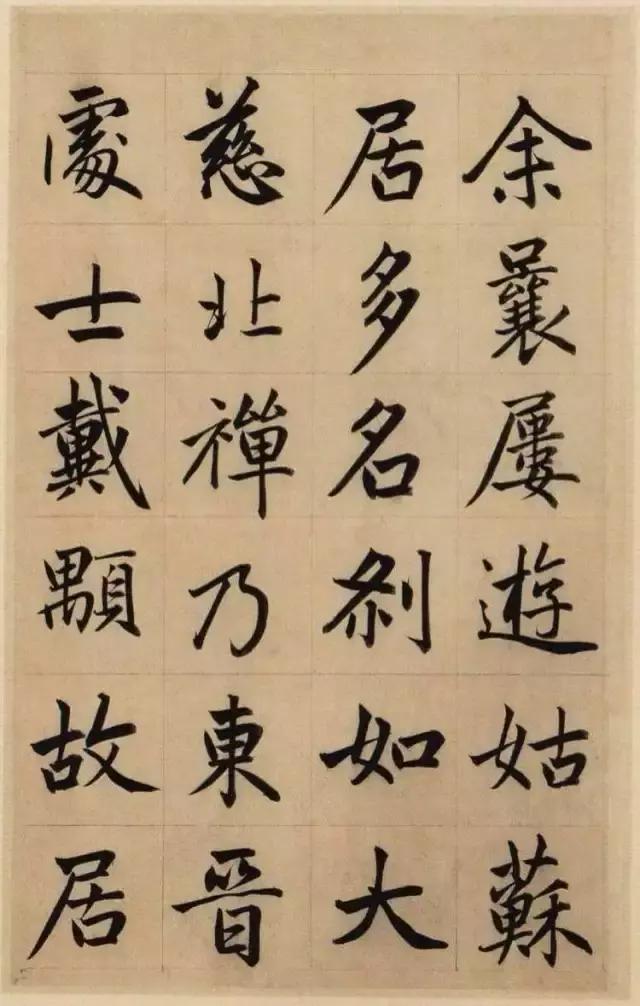 余曩屢遊姑蘇
居多名刹如大
慈北禪乃東晋
處士戴顒故居